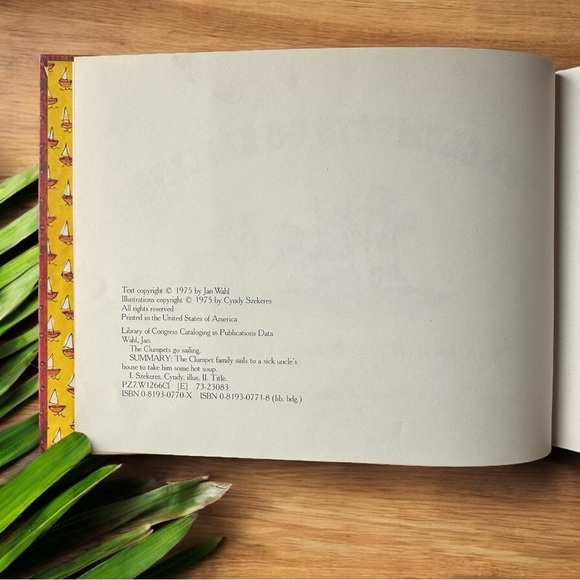 Text copyright © 1975 by Jan Wahl
Illustrations copyright © 1975 by Cyndy Szekeres
All rights reserved
Printed in the United States of America
Library of Congress Cataloging in Publications Data
Wahl, Jan.
The Clumpets go sailing.
SUMMARY: The Clumpet family sails to a sick uncle's
house to take him some hot soup.
I. Szekeres, Cyndy, illus. II. Title.
PZ7.W1266Cl [E] 73-23083
ISBN 0-8193-0770-X ISBN 0-8193-0771-8 (lib. bdg.)